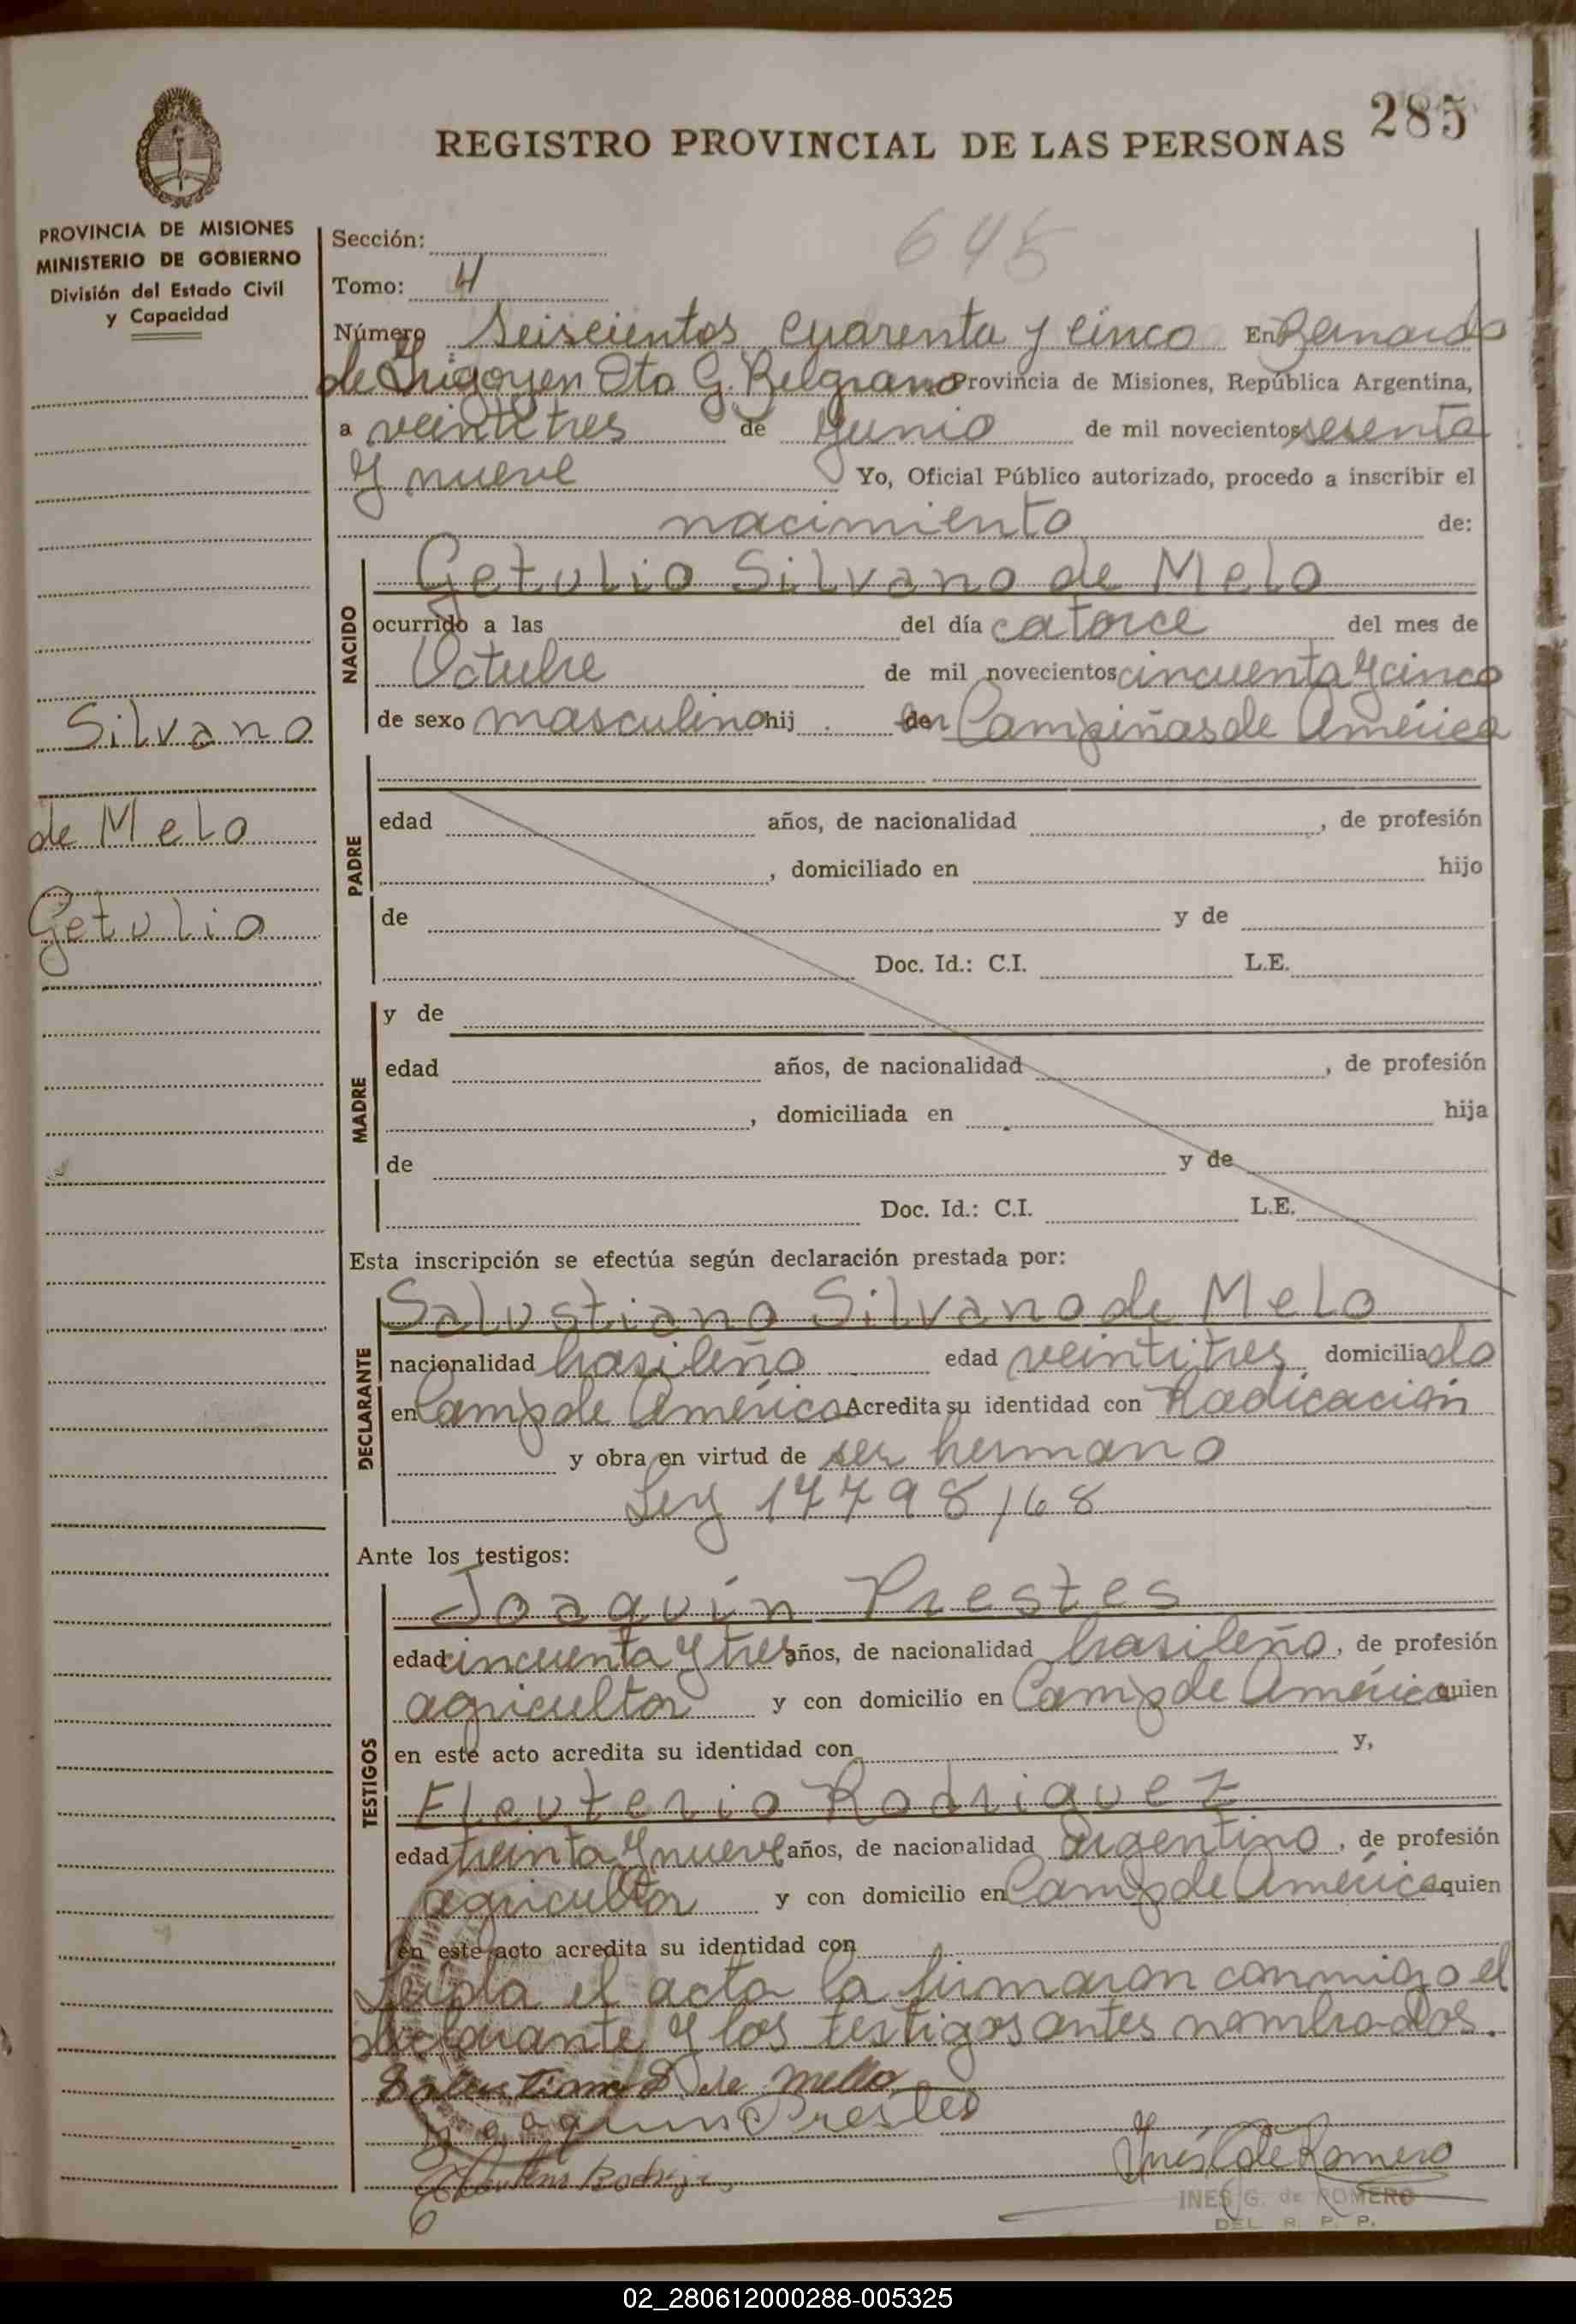 285
REGISTRO PROVINCIAL DE LAS PERSONAS
PROVINCIA DE MISIONES
MINISTERIO DE GOBIERNO
División del Estado Civil
y Capacidad
Silvano
de Melo
Getulio
645
Sección:
Tomo: 4
Número Seiscientos cuarenta y cinco En Bernardo
de Irigoyen Dto G. Belgrano Provincia de Misiones, República Argentina,
a veintitres de Junio de mil novecientos sesenta
y nueve Yo, Oficial Público autorizado, procedo a inscribir el
nacimiento de:
NACIDO
Getulio Silvano de Melo
ocurrido a las del día catorce del mes de
Octubre de mil novecientos cincuenta y cinco
de sexo masculino hij en Campiñas de América
PADRE
edad años, de nacionalidad , de profesión
, domiciliado en hijo
de y de
Doc. Id.: C.I. L.E.
MADRE
y de
edad años, de nacionalidad , de profesión
, domiciliada en hija
de y de
Doc. Id.: C.I. L.E.
Esta inscripción se efectúa según declaración prestada por:
DECLARANTE
Salustiano Silvano de Melo
nacionalidad brasileño edad veintitres domiciliado
en Camp de América Acredita su identidad con Radicación
y obra en virtud de ser hermano
Ley 17798/68
Ante los testigos:
TESTIGOS
Joaquín Prestes
edad cincuenta y tres años, de nacionalidad brasileño, de profesión
agricultor y con domicilio en Camp de América quien
en este acto acredita su identidad con y,
Eleuterio Rodriguez
edad treinta y nueve años, de nacionalidad argentino, de profesión
agricultor y con domicilio en Camp de América quien
en este acto acredita su identidad con
Leída el acta la firmaron conmigo el
declarante y los testigos antes nombrados.
Salustiano S de Mello
Joaquim Prestes
Inés G de Romero
INES G. de ROMERO
DEL. R. P. P.
02_280612000288-005325